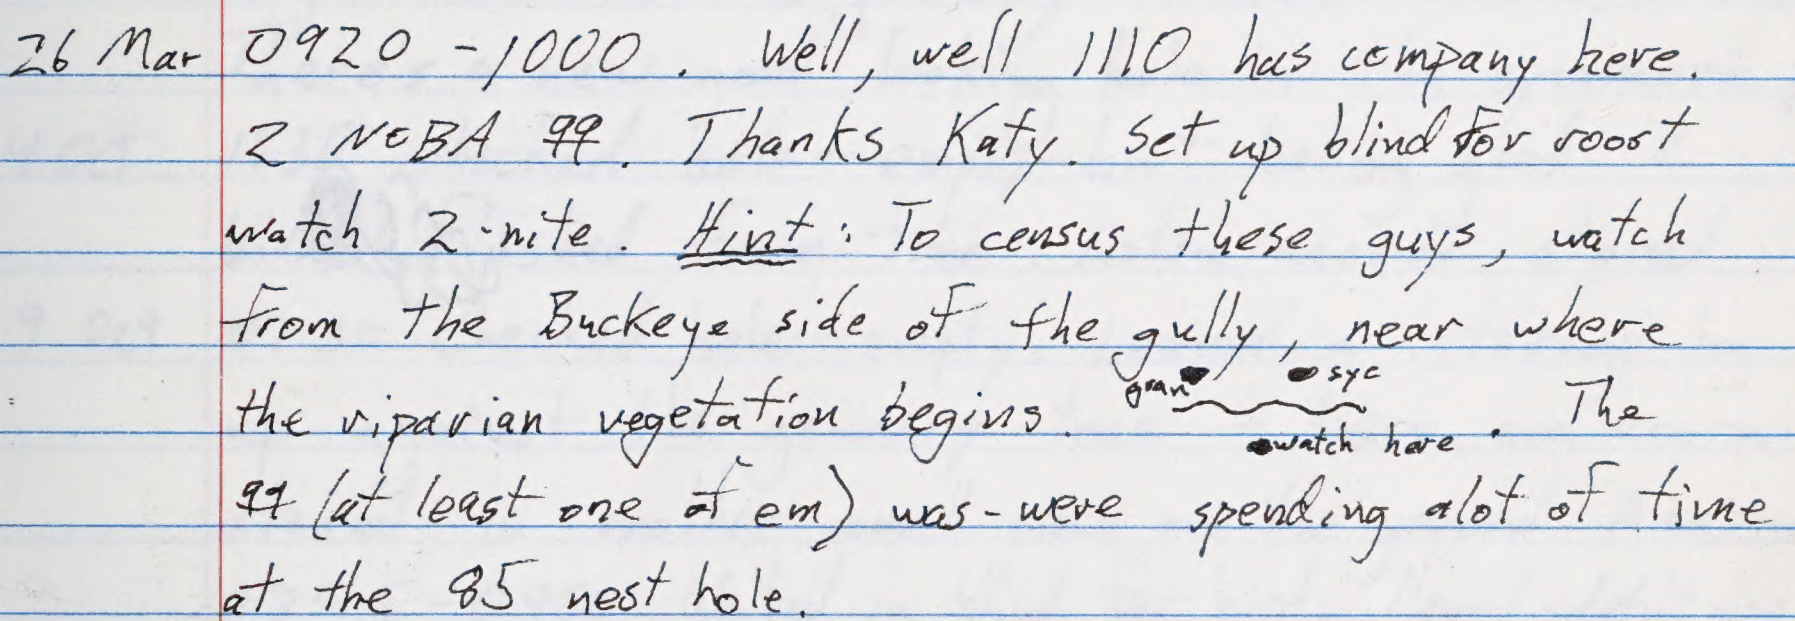 26 Mar 0920-1000. Well, well 1110 has company here.
2 NOBA ♀♀. Thanks Katy. Set up blind for roost
watch 2-nite. Hint: To census these guys, watch
from the Buckeye side of the gully, near where
the riparian vegetation begins gran syc . The
watch here
♀♀ (at least one of em) was-were spending alot of time
at the 85 nest hole.